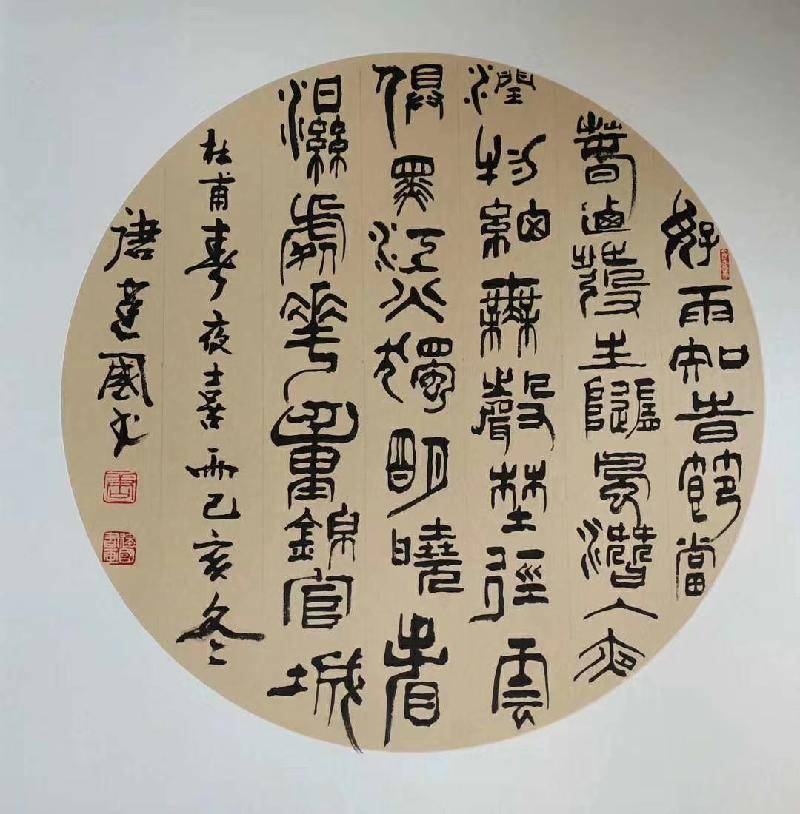 好雨知旹節當
萅迺發生隨風潛入夜
潤物細無聲野徑雲
俱黑江火獨明曉看
濕處花重錦官城
杜甫春夜喜雨己亥冬
唐建國书